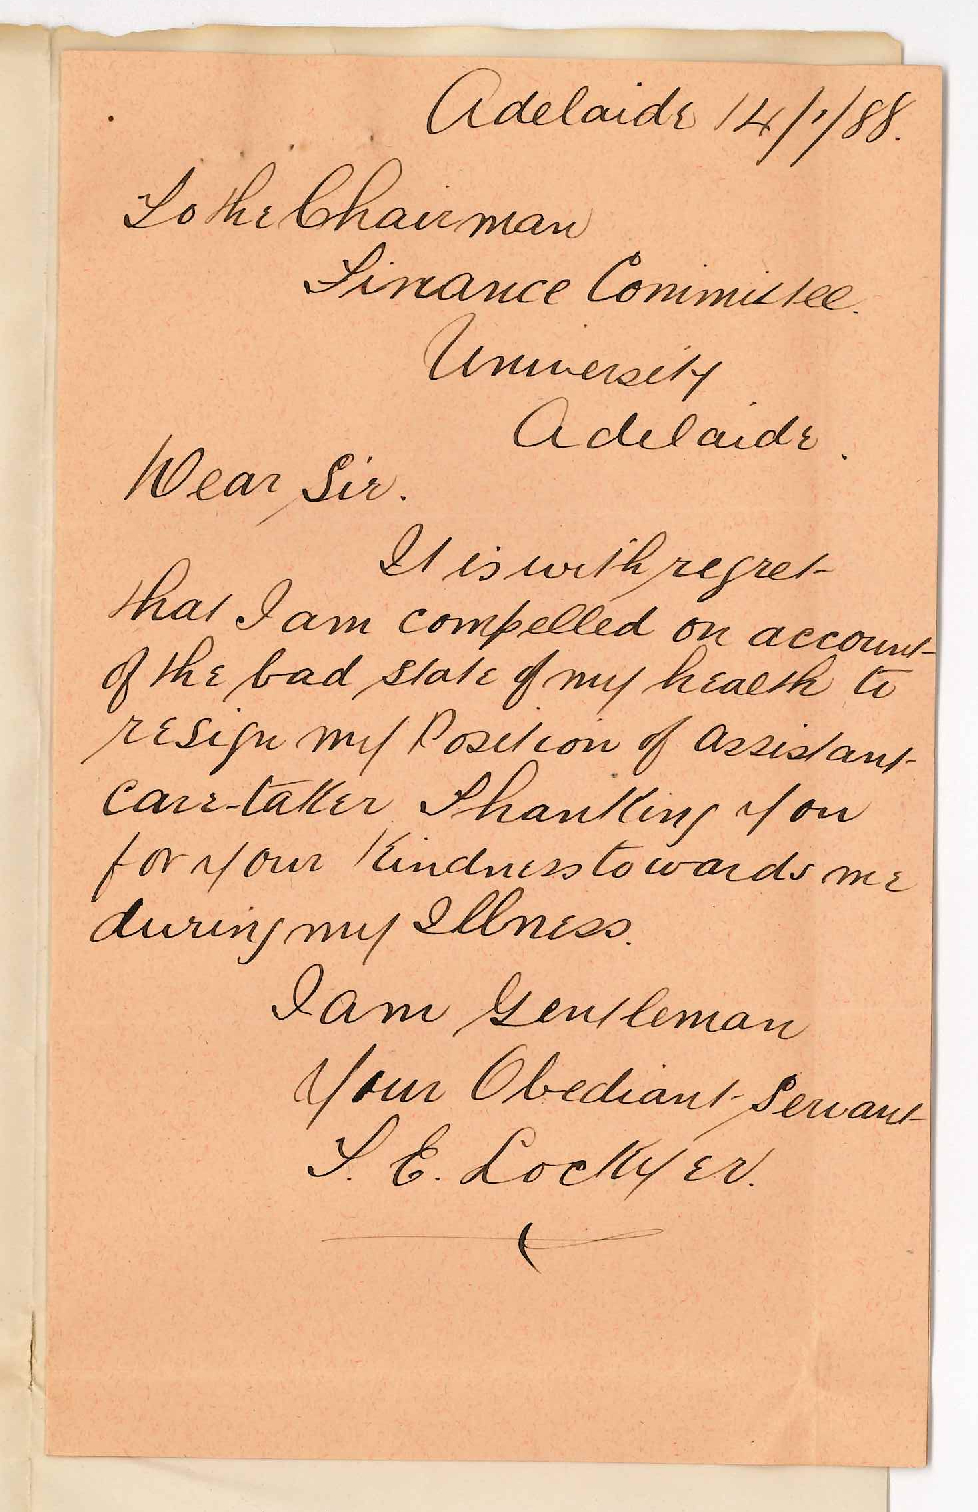 Adelaide 14/1/88.
To the Chairman
Finance Committee.
University
Adelaide.
Dear Sir.
It is with regret
that I am compelled on account
of the bad state of my health to
resign my Position of assistant
care-taker Thanking you
for your Kindness towards me
during my Illness.
I am Gentleman
Your Obediant Servant
T. E. Lockyer.